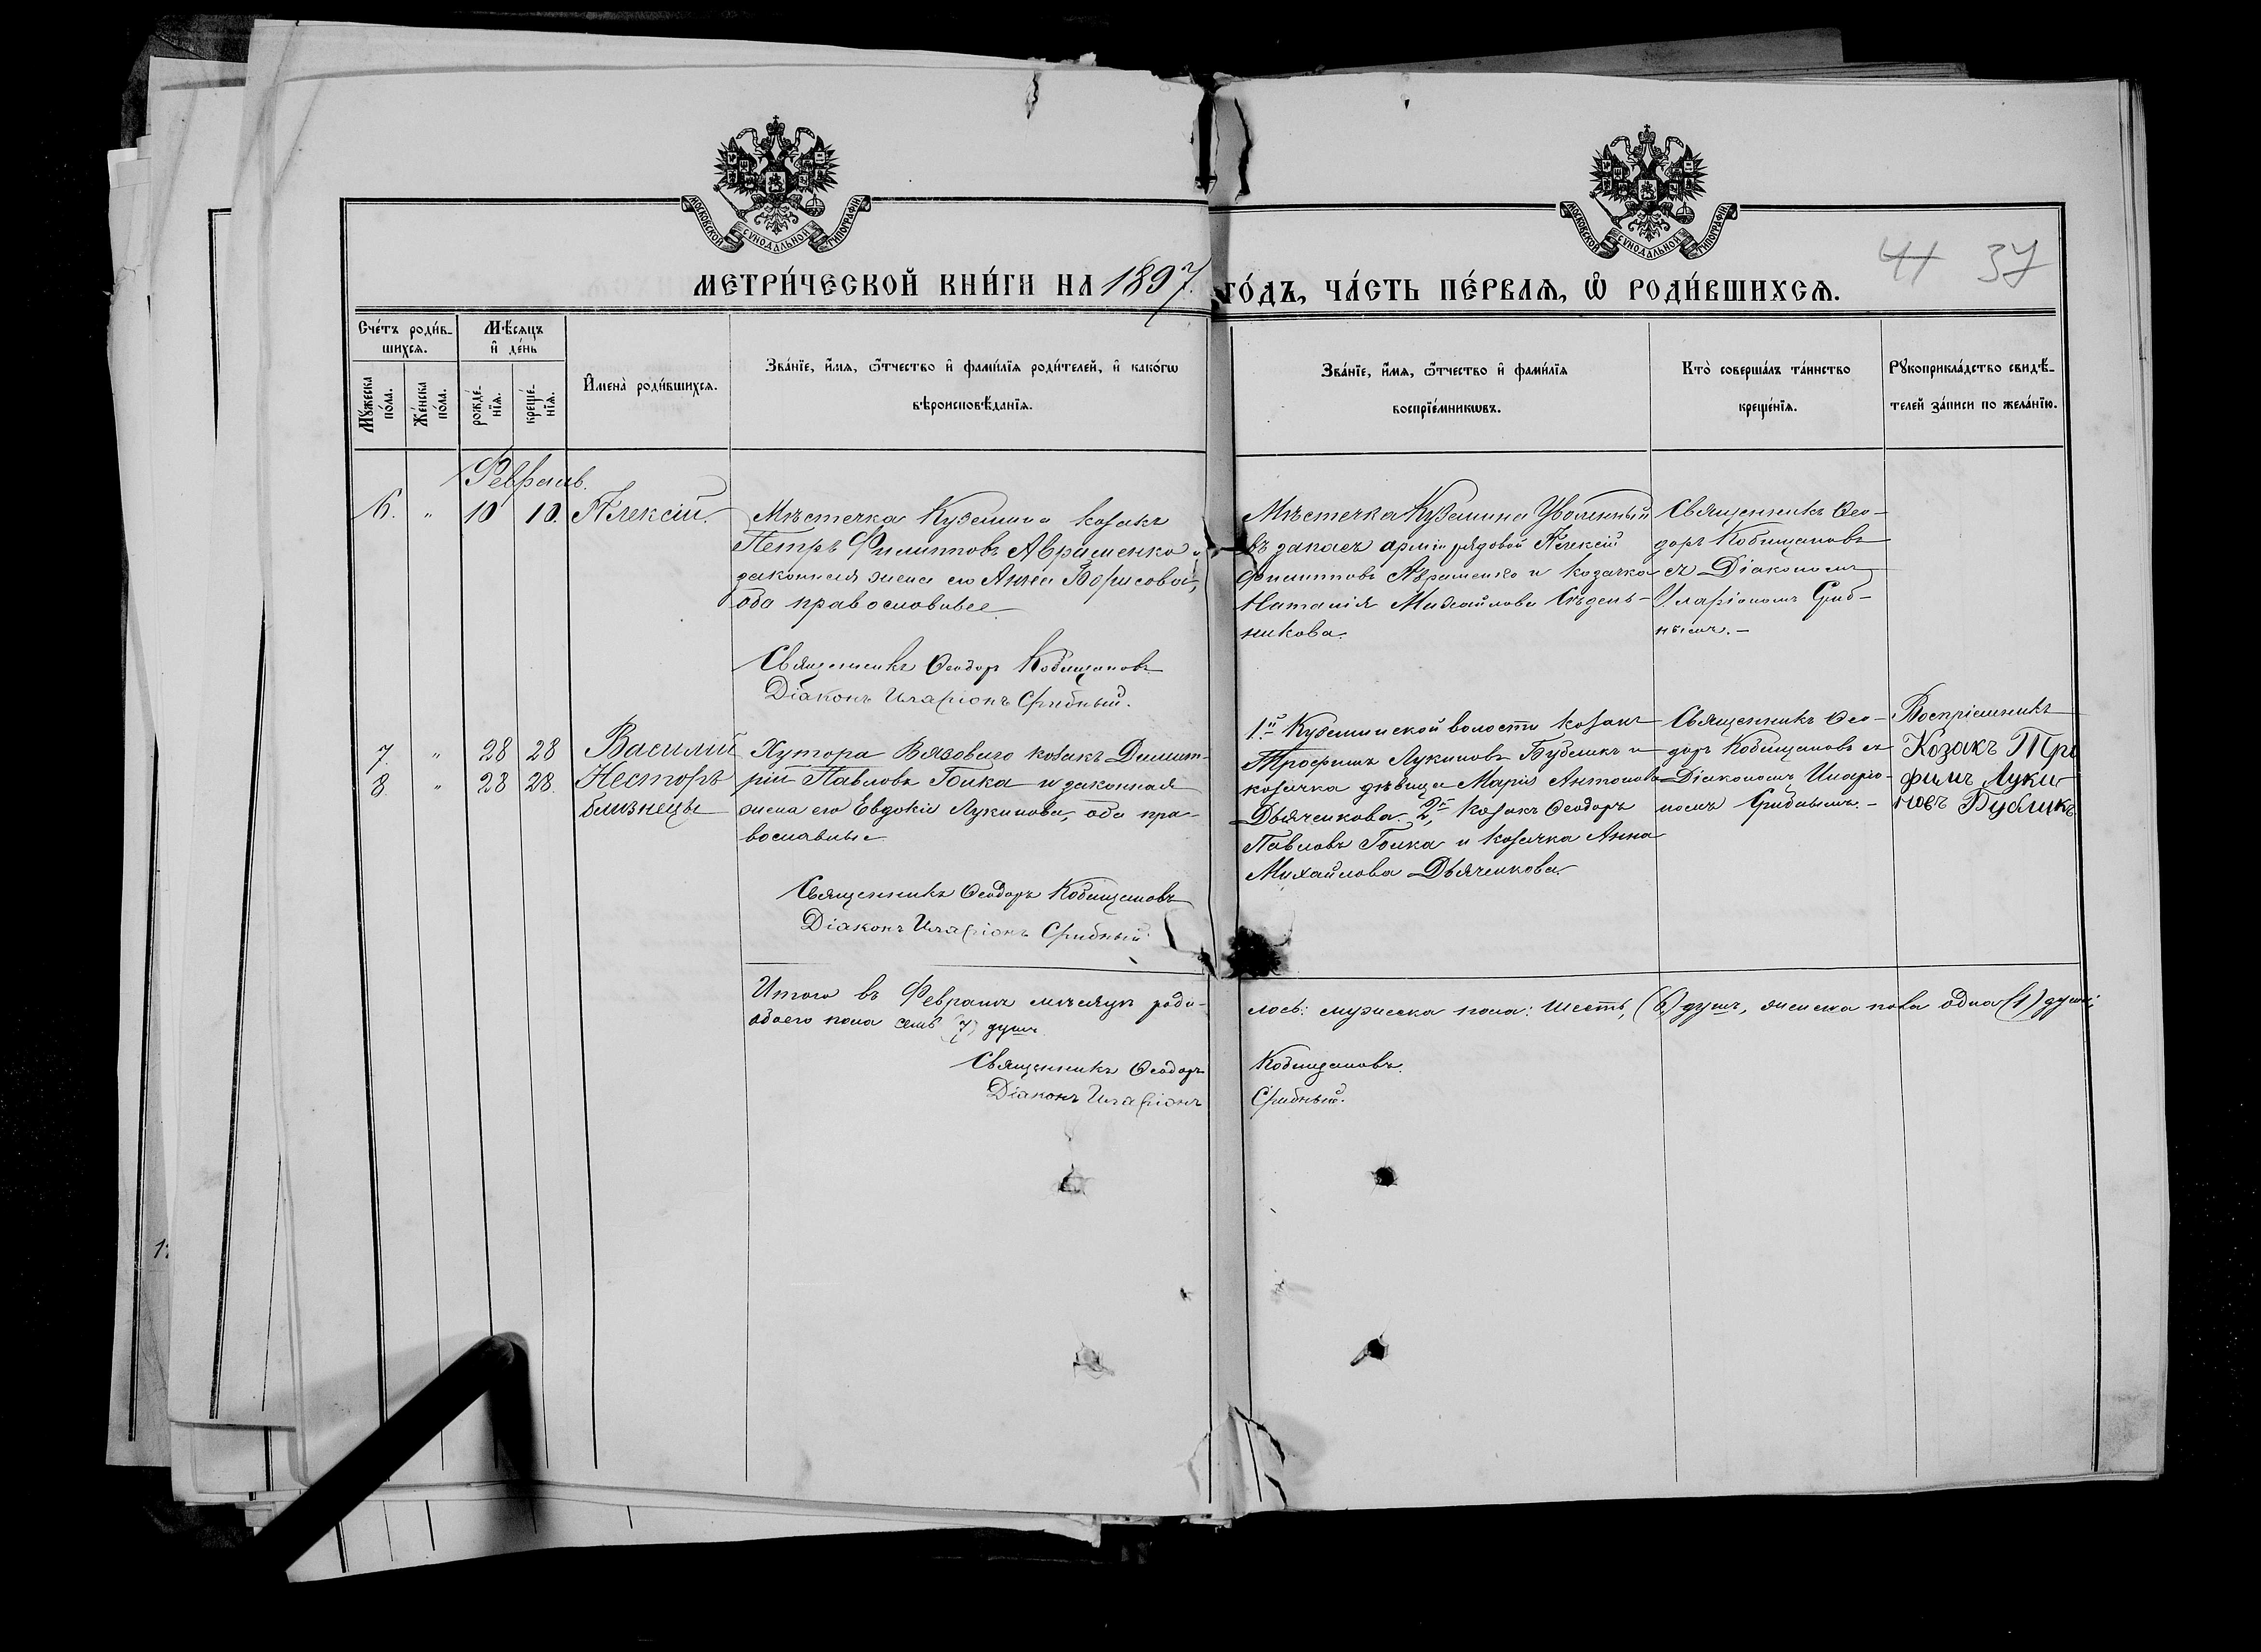 МОСКОВСКОЙ СѴНОДАЛЬНОЙ ТИПОГРАФІИ
МОСКОВСКОЙ СѴНОДАЛЬНОЙ ТИПОГРАФІИ
41 37
МЕТРИ́ЧЕСКОЙ КНИ́ГИ НА 1897.
ГО́ДЪ, ЧА́СТЬ ПЕ́РВАѦ, Ѽ РОДИ́ВШИХСѦ.
Сче́тъ роди́в-
шихсѧ.
Мѣ́сѧцъ
и҆ де́нь
Мꙋ́жеска
по́ла.
Же́нска
по́ла.
рожде́-
нїѧ.
креще́-
нїѧ.
И҆мена̀ роди́вшихсѧ.
Зва́нїе, и҆́мѧ, ѻ҆́тчество и҆ фами́лїѧ роди́телей, и҆ како́гѡ
вѣроисповѣ́данїѧ.
Зва́нїе, и҆́мѧ, ѻ҆́тчество и҆ фами́лїѧ
воспрїе́мникѡвъ.
Кто̀ соверша́лъ та́инство
креще́нїѧ.
Рꙋкоприкла́дство свидѣ́-
телей за́писи по жела́нїю.
Февраль.
6. " 10 10. Алексій.
Мѣстечка Куземина козакъ
Петръ Филипповъ Авраменко и
законная жена его Анна Борисова,
оба православные
Священникъ Ѳеодоръ Кобищановъ
Діаконъ Иларіонъ Срибный.
Мѣстечка Куземина Уволенный
въ запасъ арміи рядовой Алексій
Филипповъ Авраменко и козачка
Наталія Михайлова
никова.
Священникъ Ѳео-
доръ Кобищановъ
съ Діакономъ
Иларіономъ Сриб-
нымъ.-
7. " 28 28 Василій
8 " 28 28. Несторъ
близнецы
Хутора Вязоваго козакъ Димит-
рій Павловъ Голка и законная
жена его Евдокія Лукинова, оба пра-
вославные
Священникъ Ѳеодоръ Кобищановъ
Діаконъ Иларіонъ Срибный
1й Куземинской волости козакъ
Трофимъ Лукиновъ Бубликъ и
козачка дѣвица Марія Антонова
Дьяченкова. 2й, козакъ Ѳеодоръ
Павловъ Голка и козачка Анна
Михайлова Дьяченкова.
Священникъ Ѳео-
доръ Кобищановъ съ
Діакономъ Иларіо-
номъ Срибнымъ.-
Воспріемникъ
Козакъ Тро
фимъ Луки
новъ Бубликъ
Итого въ Февралѣ мѣсяцѣ роди-
лось: мужеска пола: шесть, (6) душъ, женска пола одна (1) душа,
обоего пола семь (7) душъ
Священникъ Ѳеодоръ Кобищановъ.
Діаконъ Иларіонъ Срибный.